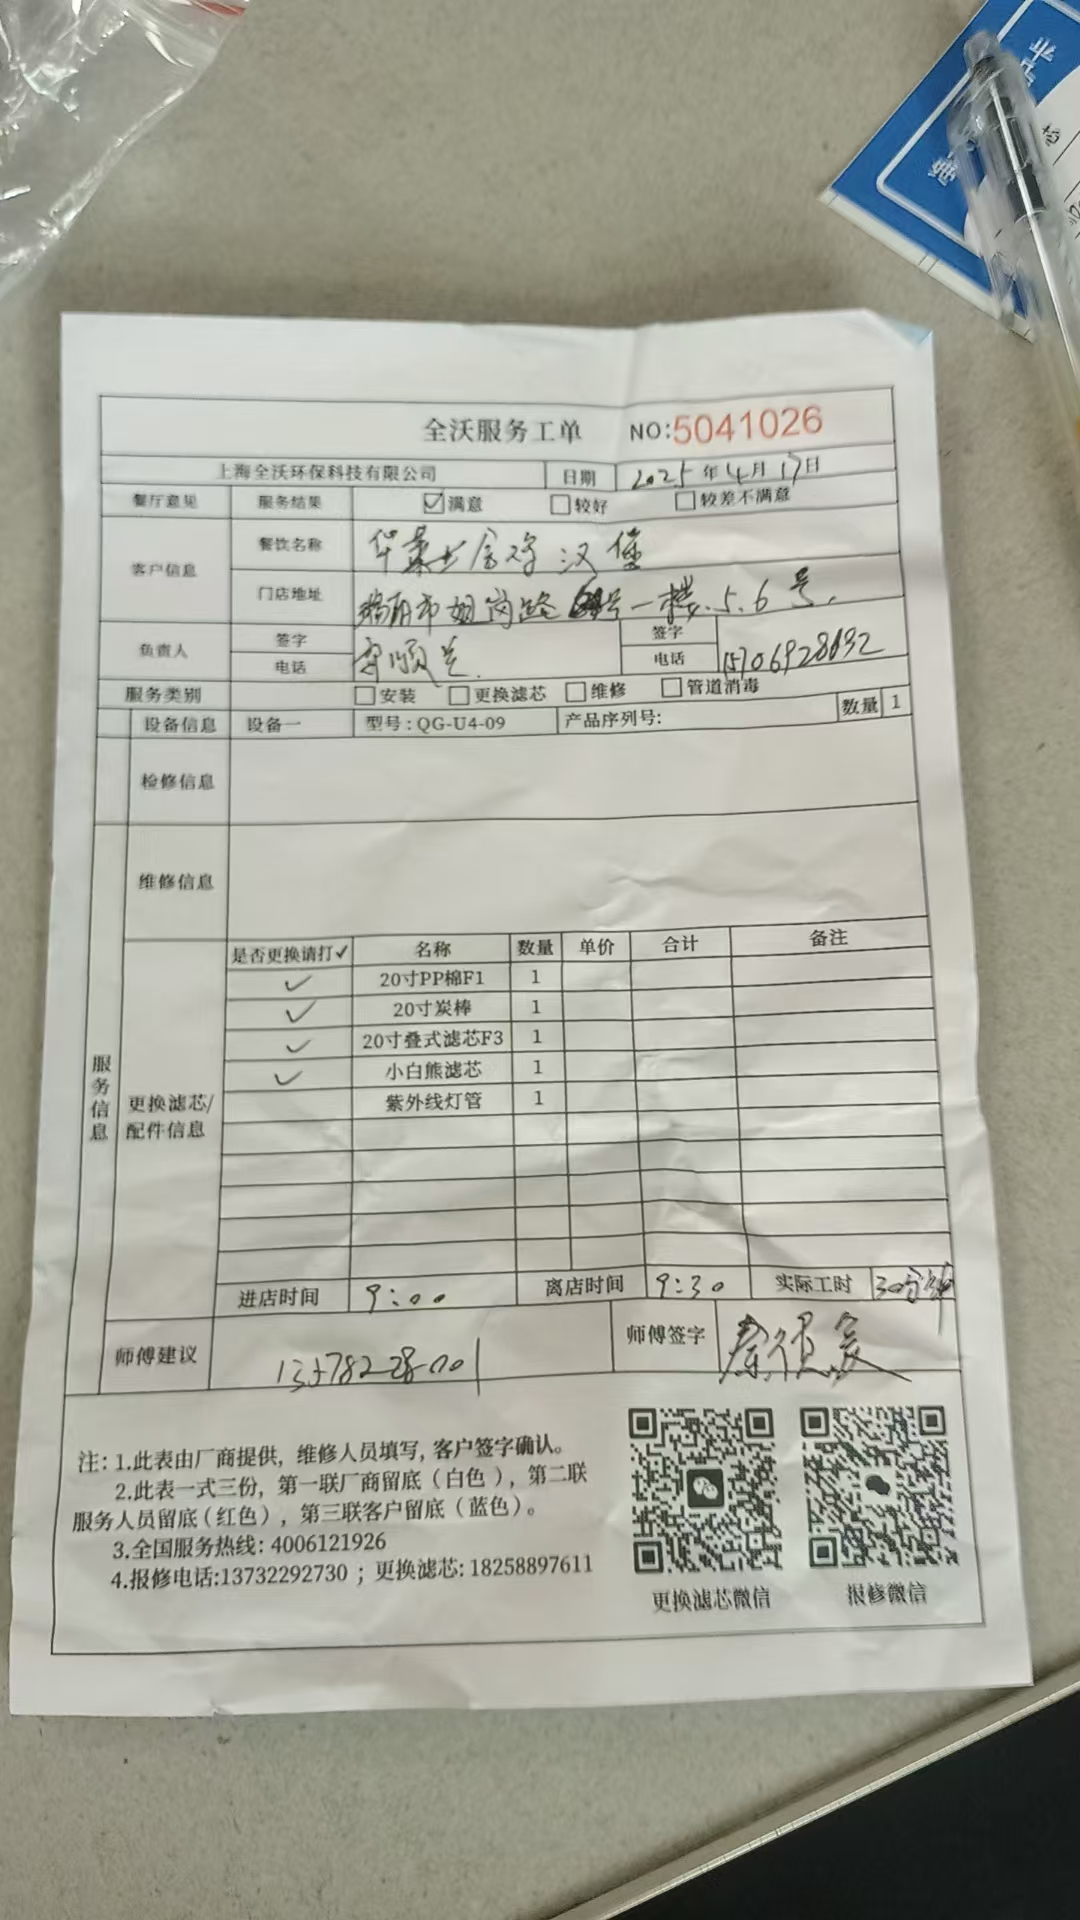 全沃服务工单 NO:5041026
上海全沃环保科技有限公司 日期 2025年4月17日
餐厅意见 服务结果 ☑满意 □较好 □较差不满意
客户信息 餐饮名称 华莱士全鸡汉堡
门店地址 路 号一楼.5.6号.
负责人 签字 顺兰 签字
电话 电话 15706928632
服务类别 □安装 □更换滤芯 □维修 □管道消毒
设备信息 设备一 型号:QG-U4-09 产品序列号: 数量 1
检修信息
维修信息
服务信息
更换滤芯/配件信息
是否更换请打✓ 名称 数量 单价 合计 备注
✓ 20寸PP棉F1 1
✓ 20寸炭棒 1
✓ 20寸叠式滤芯F3 1
✓ 小白熊滤芯 1
紫外线灯管 1
进店时间 9:00 离店时间 9:30 实际工时 30分钟
师傅建议 师傅签字
注: 1.此表由厂商提供, 维修人员填写, 客户签字确认。
2.此表一式三份, 第一联厂商留底(白色), 第二联
服务人员留底(红色), 第三联客户留底(蓝色)。
3.全国服务热线: 4006121926
4.报修电话:13732292730 ; 更换滤芯: 18258897611
更换滤芯微信 报修微信